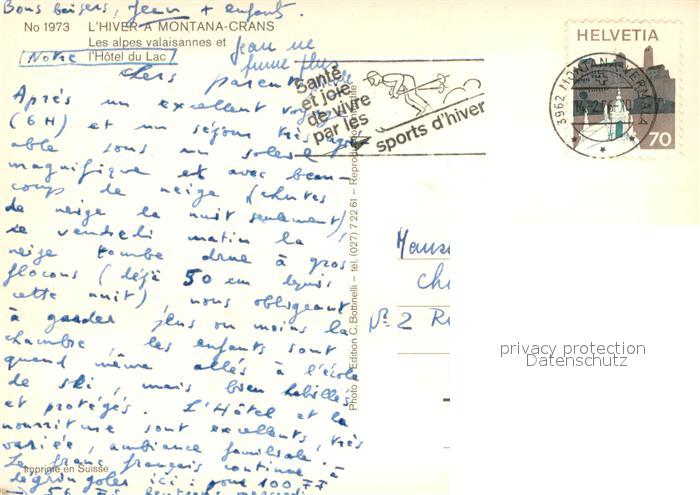 Bons baisers, Jean + enfants.
No 1973 L'HIVER A MONTANA-CRANS
Les alpes valaisannes et
(Notre) l'Hôtel du Lac
Jean ne
fume plus
Chers parents
Après un excellent voyage
(6H) et un séjour très agré-
able sous un soleil
magnifique et avec beau-
coup de neige (chutes
de neige la nuit seulement),
ce vendredi matin la
neige tombe drue à gros
flocons (déjà 50 cm depuis
cette nuit), nous obligeant
à garder plus ou moins la
chambre, les enfants sont
quand même allés à l'école
de ski, mais bien habillés
et protégés. L'Hôtel et la
nourriture sont excellents, très
variée, ambiance familiale.
Le franc français continue à
dégringoler ici : pour 100 FF
Imprimé en Suisse
Photo Edition C. Bottinelli – tél. (027) 7 22 61 – Reproduction interdite
Santé
et joie
de vivre
par les
sports d'hiver
3962 MONTANA-VERMALA
HELVETIA
70
2 R
privacy protection
Datenschutz